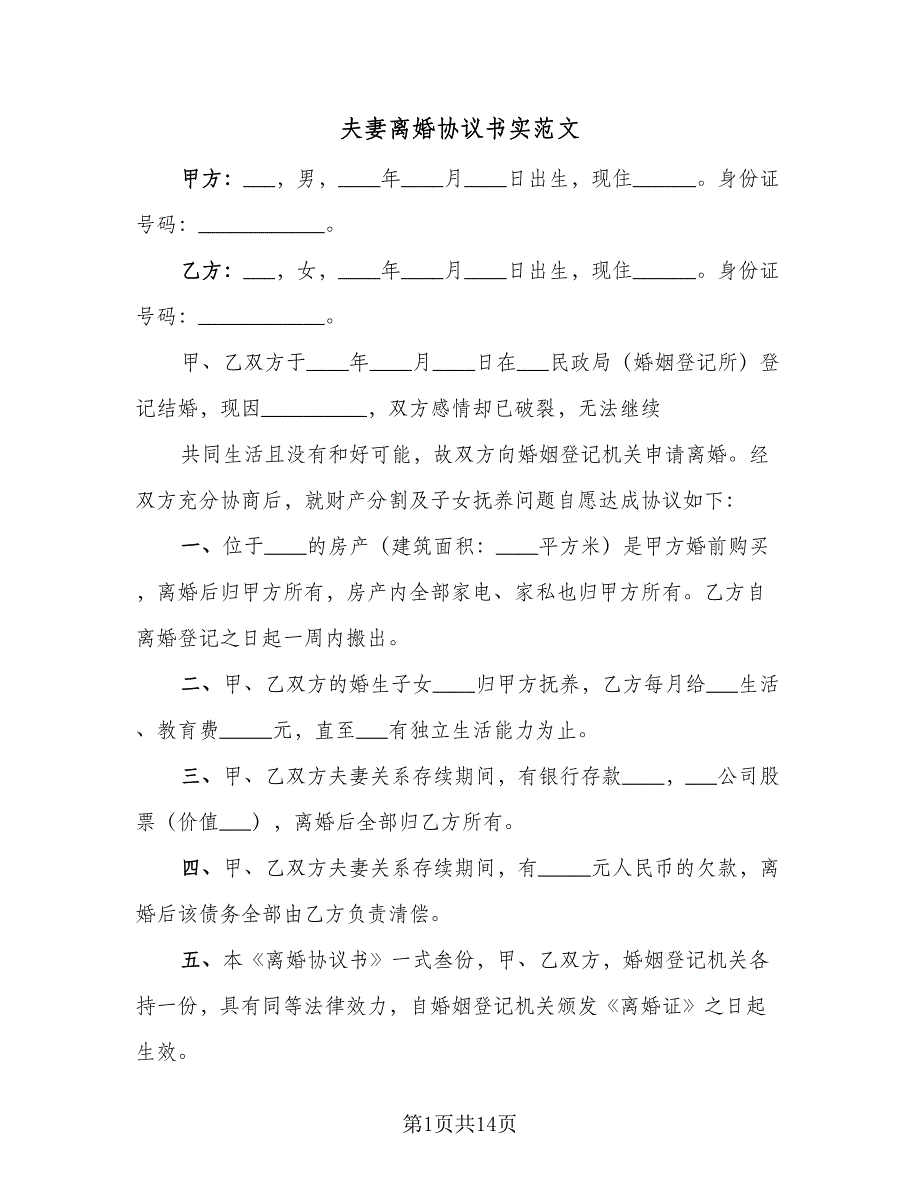 夫妻离婚协议书实范文
甲方：___，男，____年____月____日出生，现住______。身份证
号码：____________。
乙方：___，女，____年____月____日出生，现住______。身份证
号码：____________。
甲、乙双方于____年____月____日在___民政局（婚姻登记所）登
记结婚，现因__________，双方感情却已破裂，无法继续
共同生活且没有和好可能，故双方向婚姻登记机关申请离婚。经
双方充分协商后，就财产分割及子女抚养问题自愿达成协议如下：
一、位于____的房产（建筑面积：____平方米）是甲方婚前购买
，离婚后归甲方所有，房产内全部家电、家私也归甲方所有。乙方自
离婚登记之日起一周内搬出。
二、甲、乙双方的婚生子女____归甲方抚养，乙方每月给___生活
、教育费_____元，直至___有独立生活能力为止。
三、甲、乙双方夫妻关系存续期间，有银行存款____，___公司股
票（价值___），离婚后全部归乙方所有。
四、甲、乙双方夫妻关系存续期间，有_____元人民币的欠款，离
婚后该债务全部由乙方负责清偿。
五、本《离婚协议书》一式叁份，甲、乙双方，婚姻登记机关各
持一份，具有同等法律效力，自婚姻登记机关颁发《离婚证》之日起
生效。
第1页共14页